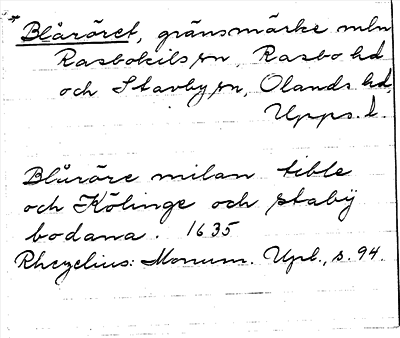 Blåröret, gränsmärke mln
Rasbokils sn, Rasbo hd
och Stavby sn, Olands hd,
Upps. l.
Blåröre milan tible
och Kölinge och staby
bodana. 1635
Rhezelius: Monum. Upl., s. 94.